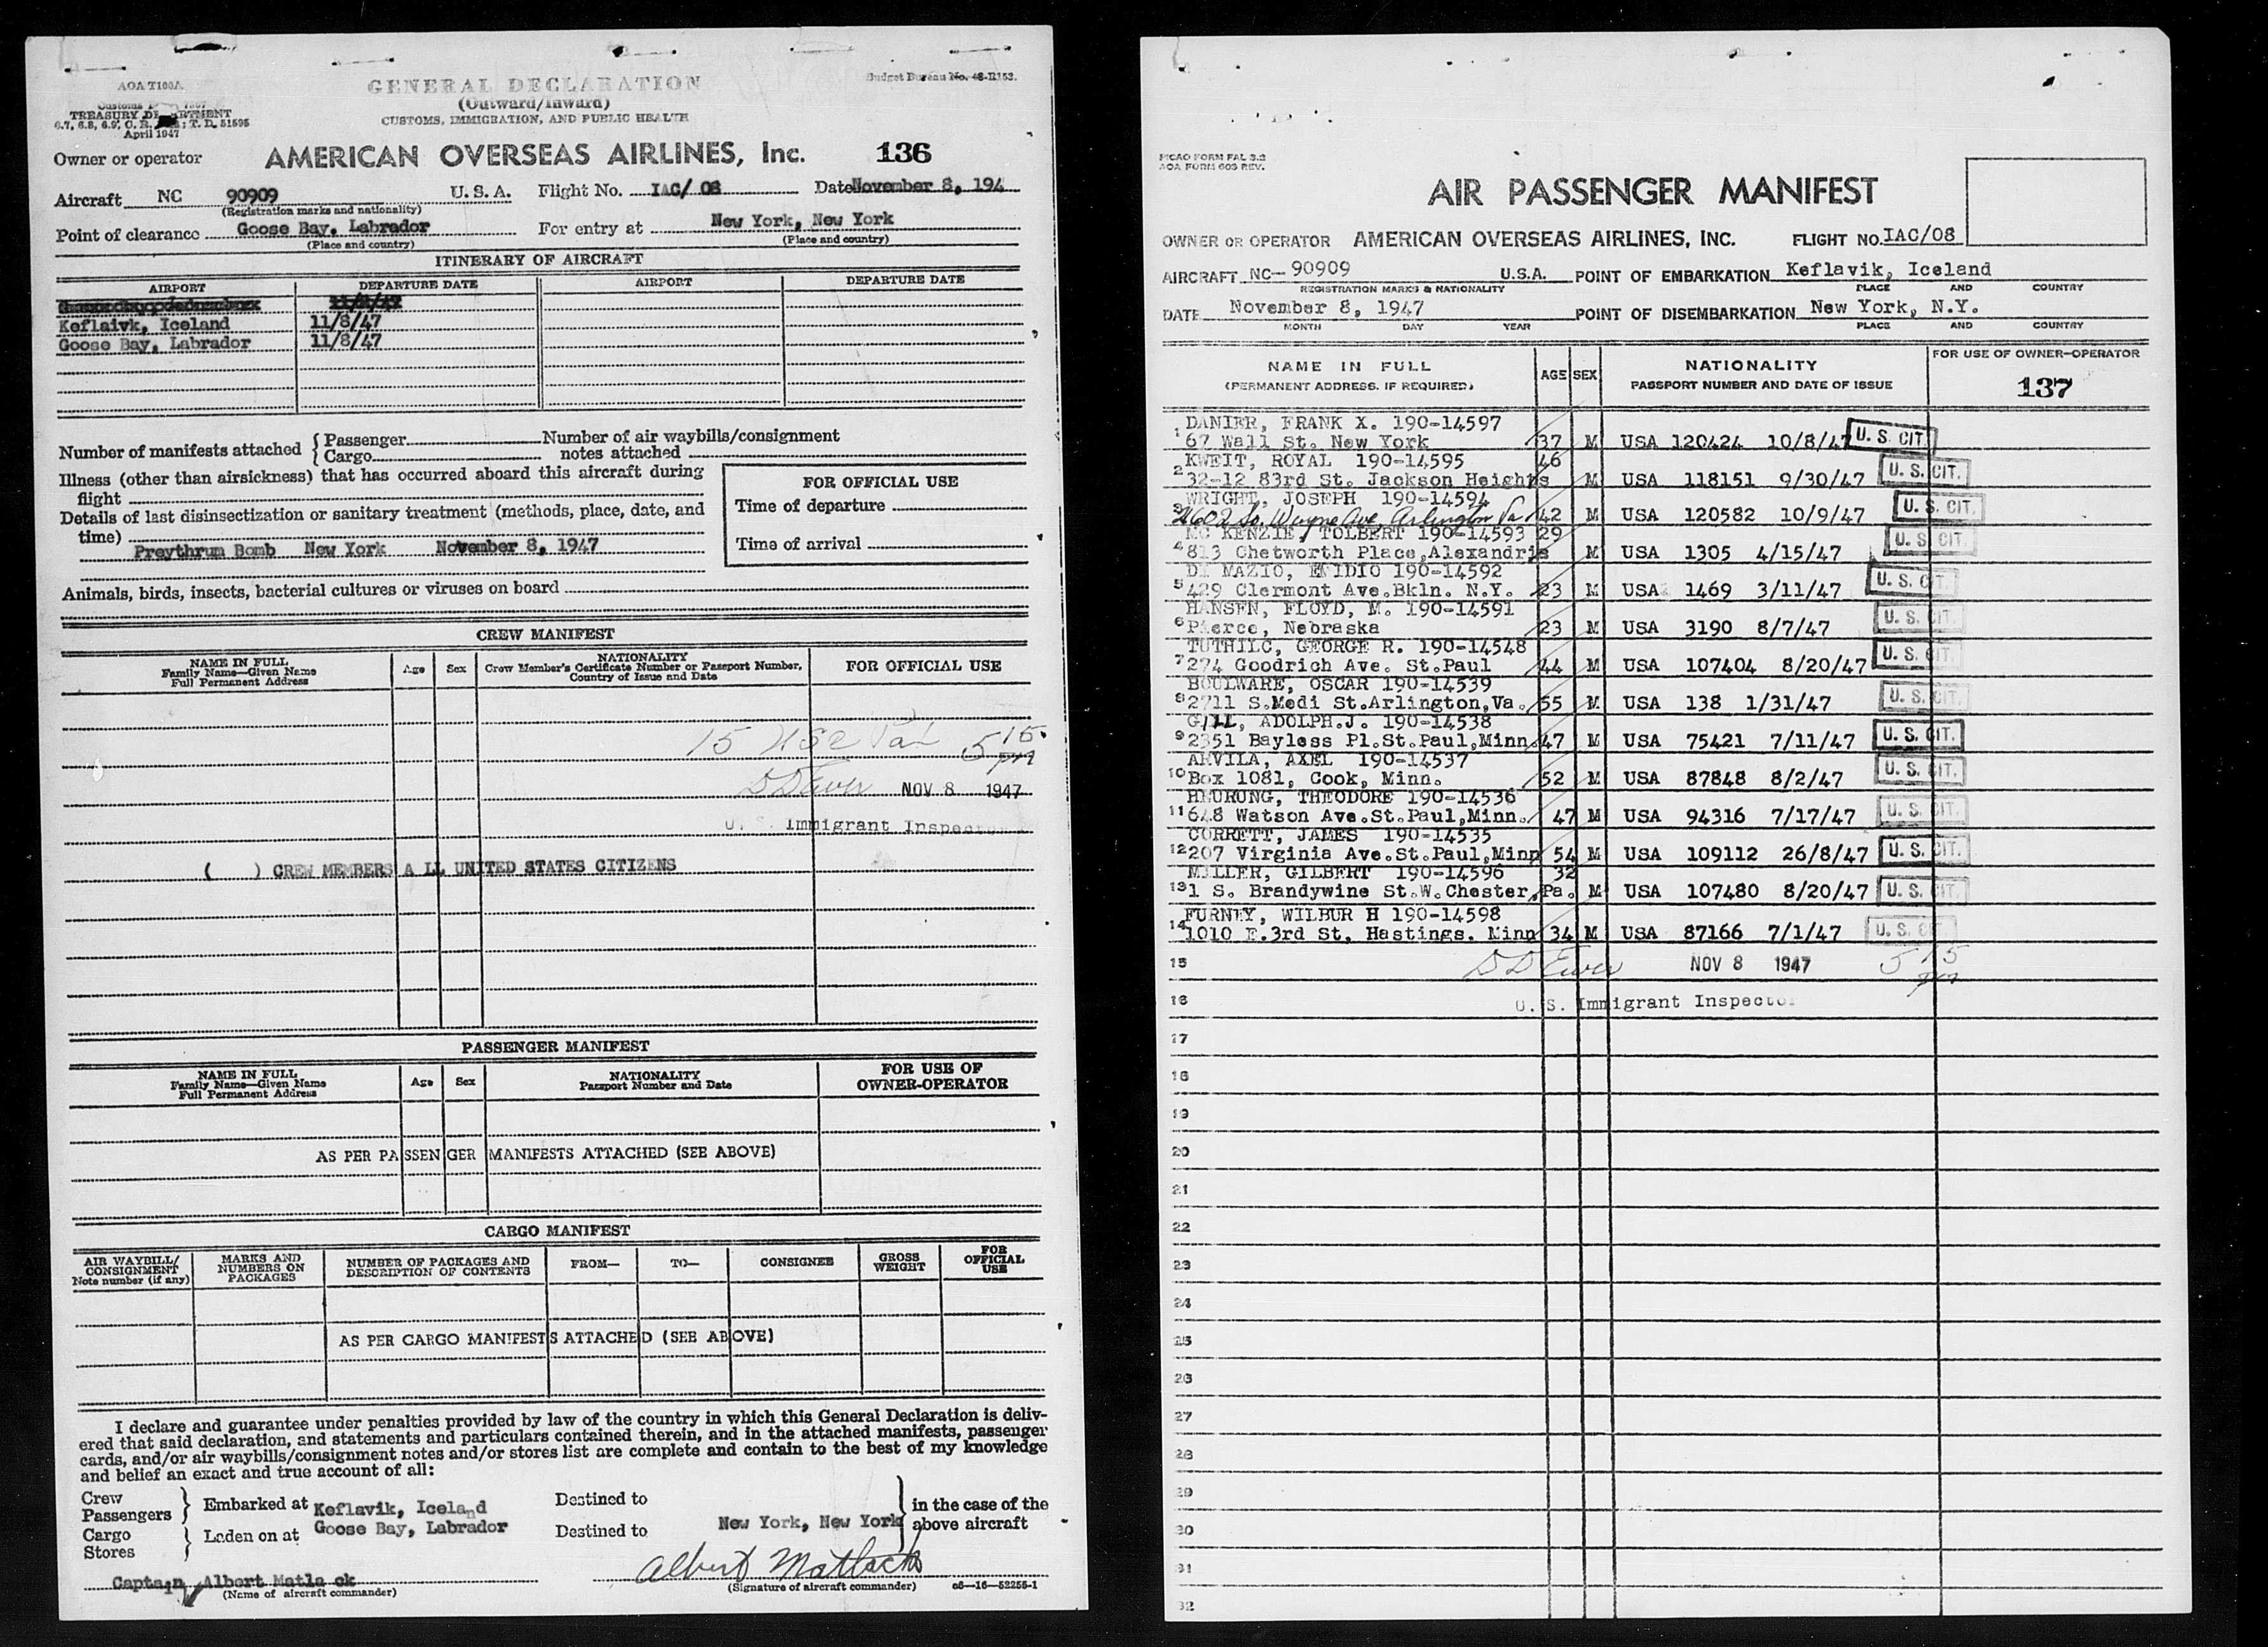 AOA T100A
GENERAL DECLARATION
Budget Bureau No. 48-R153.
(Outward/Inward)
Customs
TREASURY DEPARTMENT
CUSTOMS, IMMIGRATION, AND PUBLIC HEALTH
6.7, 6.8, 6.9, C. R. T. D. 51595
April 1947
Owner or operator AMERICAN OVERSEAS AIRLINES, Inc. 136
Aircraft NC 90909 U. S. A. Flight No. IAC/ 08 Date November 8, 194
(Registration marks and nationality)
Point of clearance Goose Bay, Labrador For entry at New York, New York
(Place and country) (Place and country)
ITINERARY OF AIRCRAFT
AIRPORT DEPARTURE DATE AIRPORT DEPARTURE DATE
Keflaivk, Iceland 11/8/47
Goose Bay, Labrador 11/8/47
Number of manifests attached { Passenger Number of air waybills/consignment
Cargo notes attached
Illness (other than airsickness) that has occurred aboard this aircraft during
flight
Details of last disinsectization or sanitary treatment (methods, place, date, and
time)
Preythrum Bomb New York November 8, 1947
FOR OFFICIAL USE
Time of departure
Time of arrival
Animals, birds, insects, bacterial cultures or viruses on board
CREW MANIFEST
NAME IN FULL
Family Name—Given Name
Full Permanent Address
Age Sex
NATIONALITY
Crew Member's Certificate Number or Passport Number,
Country of Issue and Date
FOR OFFICIAL USE
15 5 15
NOV 8 1947
U. S. Immigrant Inspector
( ) CREW MEMBERS A LL UNITED STATES CITIZENS
PASSENGER MANIFEST
NAME IN FULL
Family Name—Given Name
Full Permanent Address
Age Sex
NATIONALITY
Passport Number and Date
FOR USE OF
OWNER-OPERATOR
AS PER PASSENGER MANIFESTS ATTACHED (SEE ABOVE)
CARGO MANIFEST
AIR WAYBILL/
CONSIGNMENT
Note number (if any)
MARKS AND
NUMBERS ON
PACKAGES
NUMBER OF PACKAGES AND
DESCRIPTION OF CONTENTS
FROM— TO— CONSIGNEE
GROSS
WEIGHT
FOR
OFFICIAL
USE
AS PER CARGO MANIFESTS ATTACHED (SEE ABOVE)
I declare and guarantee under penalties provided by law of the country in which this General Declaration is deliv-
ered that said declaration, and statements and particulars contained therein, and in the attached manifests, passenger
cards, and/or air waybills/consignment notes and/or stores list are complete and contain to the best of my knowledge
and belief an exact and true account of all:
Crew
Passengers } Embarked at Keflavik, Iceland Destined to
Cargo
Stores } Laden on at Goose Bay, Labrador Destined to New York, New York
in the case of the
above aircraft
Captain Albert Matla ck Albert Matlack
(Name of aircraft commander) (Signature of aircraft commander) c6—16—52255-1
PICAO FORM FAL 3.2
AOA FORM 603 REV.
AIR PASSENGER MANIFEST
OWNER OR OPERATOR AMERICAN OVERSEAS AIRLINES, INC. FLIGHT NO. IAC/08
AIRCRAFT NC— 90909 U.S.A. POINT OF EMBARKATION Keflavik, Iceland
REGISTRATION MARKS & NATIONALITY PLACE AND COUNTRY
DATE November 8, 1947 POINT OF DISEMBARKATION New York, N.Y.
MONTH DAY YEAR PLACE AND COUNTRY
NAME IN FULL
(PERMANENT ADDRESS, IF REQUIRED)
AGE SEX
NATIONALITY
PASSPORT NUMBER AND DATE OF ISSUE
FOR USE OF OWNER—OPERATOR
137
DANIER, FRANK X. 190-14597
1 67 Wall St. New York 37 M USA 120424 10/8/47 U. S. CIT.
KWEIT, ROYAL 190-14595 46
2 32-12 83rd St. Jackson Heights M USA 118151 9/30/47 U. S. CIT.
WRIGHT, JOSEPH 190-14594
3 2602 So. Wayne Ave, Arlington Va 42 M USA 120582 10/9/47 U. S. CIT.
MC KENZIE, TOLBERT 190-14593 29
4 813 Chetworth Place,Alexandria M USA 1305 4/15/47 U. S. CIT.
DI MAZIO, EMIDIO 190-14592
5 429 Clermont Ave.Bkln. N.Y. 23 M USA 1469 3/11/47 U. S. CIT.
HANSEN, FLOYD, M. 190-14591
6 Pierce, Nebraska 23 M USA 3190 8/7/47 U. S. CIT.
TUTHILC, GEORGE R. 190-14548
7 274 Goodrich Ave. St.Paul 44 M USA 107404 8/20/47 U. S. CIT.
BOULWARE, OSCAR 190-14539
8 2711 S.Modi St.Arlington,Va. 55 M USA 138 1/31/47 U. S. CIT.
GILL, ADOLPH.J. 190-14538
9 2351 Bayless Pl.St.Paul,Minn. 47 M USA 75421 7/11/47 U. S. CIT.
ARVILA, AXEL 190-14537
10 Box 1081, Cook, Minn. 52 M USA 87848 8/2/47 U. S. CIT.
HEURUNG, THEODORE 190-14536
11 648 Watson Ave.St.Paul,Minn. 47 M USA 94316 7/17/47 U. S. CIT.
CORRETT, JAMES 190-14535
12 207 Virginia Ave.St.Paul,Minn 54 M USA 109112 26/8/47 U. S. CIT.
MILLER, GILBERT 190-14596 32
13 1 S. Brandywine St.W.Chester,Pa. M USA 107480 8/20/47 U. S. CIT.
FURNEY, WILBUR H 190-14598
14 1010 E.3rd St, Hastings. Minn 34 M USA 87166 7/1/47 U. S. CIT.
15 NOV 8 1947 5 15
16 U. S. Immigrant Inspector
17
18
19
20
21
22
23
24
25
26
27
28
29
30
31
32